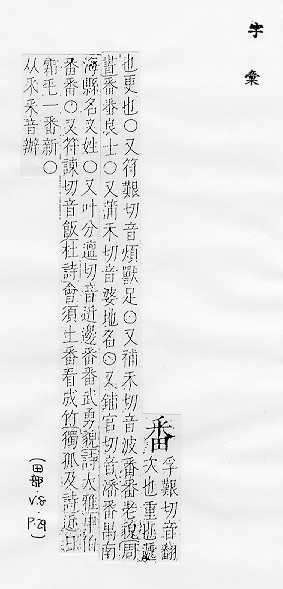 字彙
番
孚艱切音翻
次也重也遞
也更也〇又符艱切音煩獸足〇又補禾切音波番番老貌周
書番番良士〇又蒲禾切音婆地名〇又鋪官切音潘番禺南
海縣名又姓〇又叶分邅切音近邊番番武勇貌詩大雅申伯
番番〇又符諫切音飯杜詩會須上番看成竹獨孤及詩近日
霜毛一番新〇
从釆釆音辦
(田部 V.8 P.